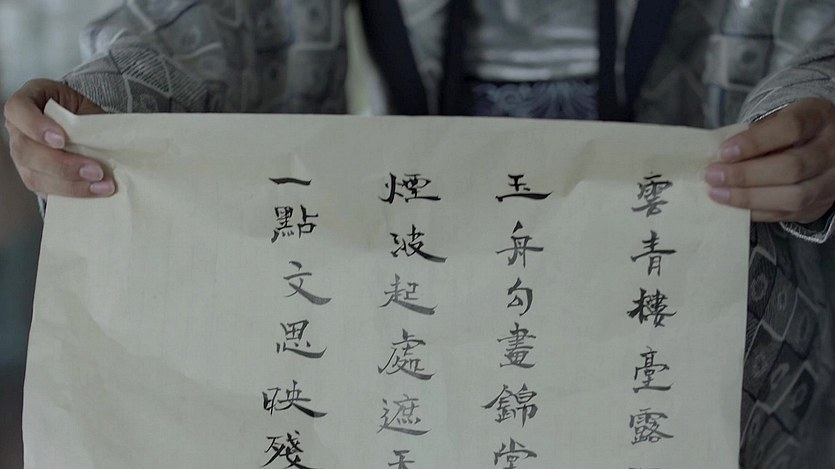 雲青樓臺露
玉舟勾畫錦堂
煙波起處遮天
一點文思映殘